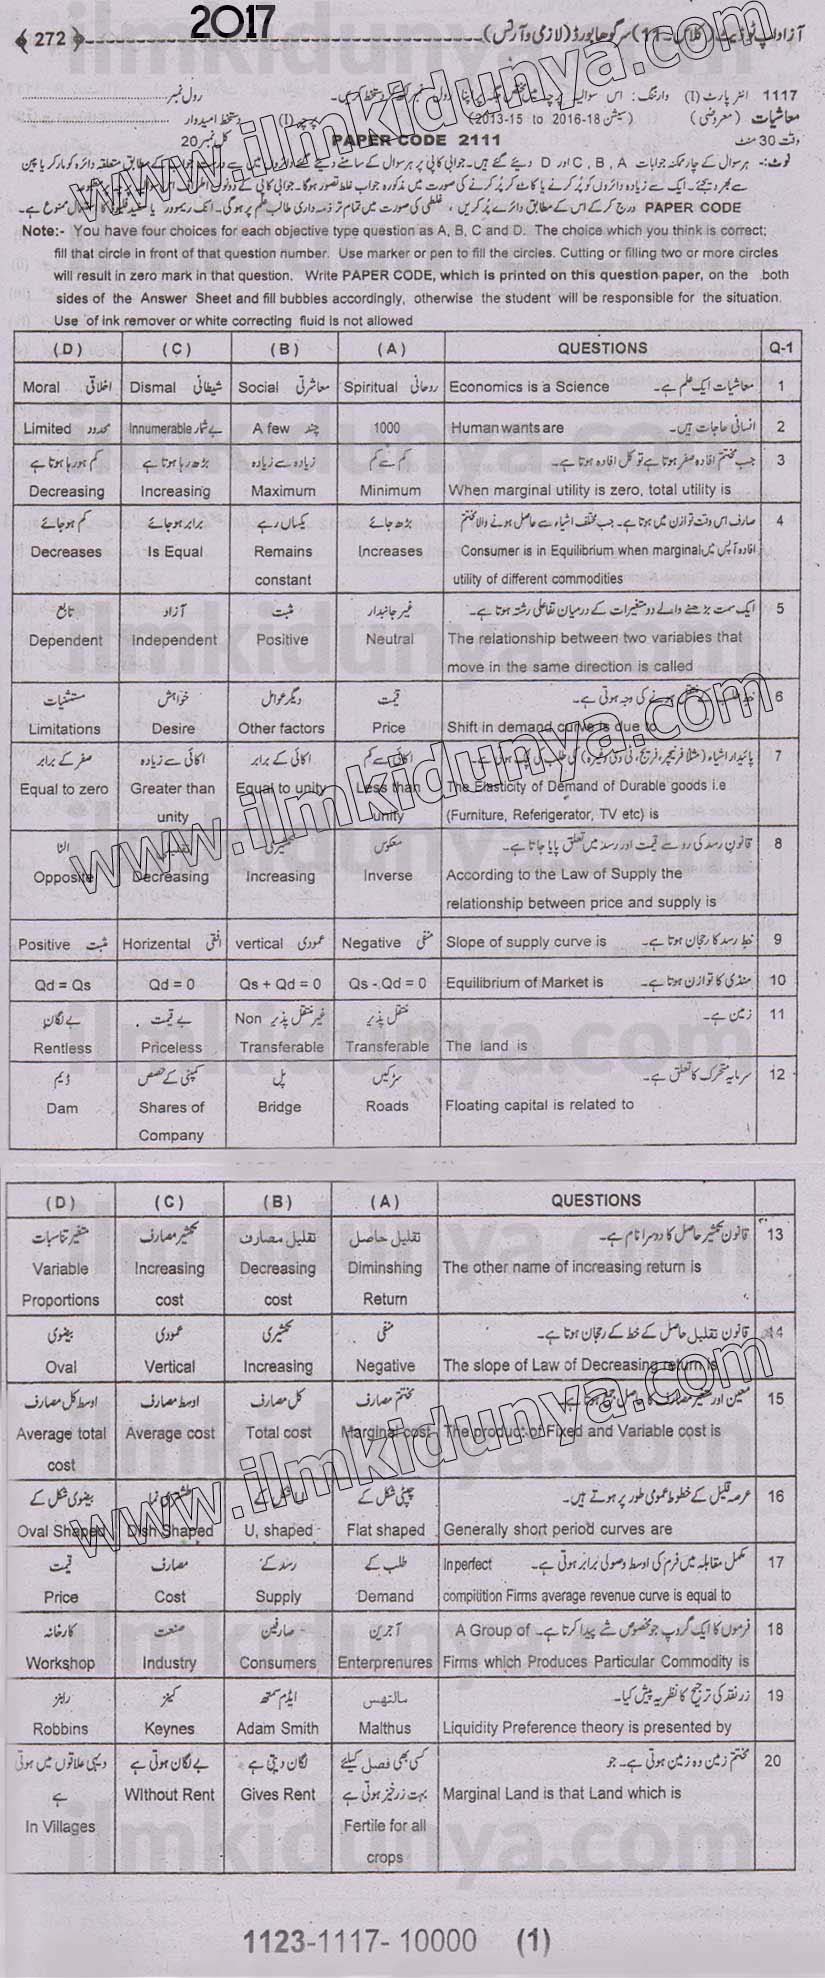 2017
آزاد اپ ٹو ڈیٹ (کلاس-11) سرگودھا بورڈ (لازمی و آرٹس) ﴾272﴿
1117 انٹر پارٹ (I) وارننگ: اس سوالیہ پرچہ پر اپنا رول نمبر دستخط کریں۔ رول نمبر
معاشیات (معروضی) (سیشن 2013-15 to 2016-18) پرچہ (I) دستخط امیدوار
وقت 30 منٹ PAPER CODE 2111 کل نمبر 20
نوٹ:- ہر سوال کے چار ممکنہ جوابات A , B , C اور D دیئے گئے ہیں۔ جوابی کاپی پر ہر سوال کے سامنے دیئے گئے دائروں میں سے درست جواب کے مطابق متعلقہ دائرہ کو مارکر یا پین
سے بھر دیجئے۔ ایک سے زیادہ دائروں کو پُر کرنے یا کاٹ کر پُر کرنے کی صورت میں مذکورہ جواب غلط تصور ہوگا۔ جوابی کاپی کے دونوں اطراف اس سوالیہ پرچہ پر مطبوعہ
PAPER CODE درج کر کے اس کے مطابق دائرے پُر کریں ، غلطی کی صورت میں تمام تر ذمہ داری طالب علم پر ہوگی۔ انک ریموور یا سفید فلیوڈ کا استعمال ممنوع ہے۔
Note:- You have four choices for each objective type question as A, B, C and D. The choice which you think is correct;
fill that circle in front of that question number. Use marker or pen to fill the circles. Cutting or filling two or more circles
will result in zero mark in that question. Write PAPER CODE, which is printed on this question paper, on the both
sides of the Answer Sheet and fill bubbles accordingly, otherwise the student will be responsible for the situation.
Use of ink remover or white correcting fluid is not allowed
(D) (C) (B) (A) QUESTIONS Q-1
Moral اخلاقی Dismal شیطانی Social معاشرتی Spiritual روحانی Economics is a Science معاشیات ایک علم ہے۔ 1
Limited محدود Innumerable بے شمار A few چند 1000 Human wants are انسانی حاجات ہیں۔ 2
کم ہو رہا ہوتا ہے بڑھ رہا ہوتا ہے زیادہ سے زیادہ کم سے کم جب مختتم افادہ صفر ہوتا ہے تو کل افادہ ہوتا ہے۔ 3
Decreasing Increasing Maximum Minimum When marginal utility is zero, total utility is
کم ہو جائے برابر ہو جائے یکساں رہے بڑھ جائے صارف اس وقت توازن میں ہوتا ہے۔ جب مختلف اشیاء سے حاصل ہونے والا مختتم 4
Decreases Is Equal Remains Increases Consumer is in Equilibrium when marginal افادہ آپس میں
constant utility of different commodities
تابع آزاد مثبت غیر جانبدار ایک سمت بڑھنے والے دو متغیرات کے درمیان تفاعلی رشتہ ہوتا ہے۔ 5
Dependent Independent Positive Neutral The relationship between two variables that
move in the same direction is called
مستثنیات خواہش دیگر عوامل قیمت خط طلب کے منتقل ہونے کی وجہ ہوتی ہے۔ 6
Limitations Desire Other factors Price Shift in demand curve is due to
صفر کے برابر اکائی سے زیادہ اکائی کے برابر اکائی سے کم پائیدار اشیاء (مثلاً فرنیچر، فریج، ٹی وی وغیرہ) کی طلب کی لچک ہوتی ہے۔ 7
Equal to zero Greater than Equal to unity Less than The Elasticity of Demand of Durable goods i.e
unity unity (Furniture, Referigerator, TV etc) is
الٹا تقلیلی تکثیری معکوس قانون رسد کی رو سے قیمت اور رسد میں تعلق پایا جاتا ہے۔ 8
Opposite Decreasing Increasing Inverse According to the Law of Supply the
relationship between price and supply is
Positive مثبت Horizental افقی vertical عمودی Negative منفی Slope of supply curve is خط رسد کا رجحان ہوتا ہے۔ 9
Qd = Qs Qd = 0 Qs + Qd = 0 Qs - Qd = 0 Equilibrium of Market is منڈی کا توازن ہوتا ہے۔ 10
بے لگان بے قیمت Non غیر منتقل پذیر منتقل پذیر زمین ہے۔ 11
Rentless Priceless Transferable Transferable The land is
ڈیم کمپنی کے حصص پل سڑکیں سرمایہ متحرک کا تعلق ہے۔ 12
Dam Shares of Bridge Roads Floating capital is related to
Company
(D) (C) (B) (A) QUESTIONS
متغیر تناسبات تکثیر مصارف تقلیل مصارف تقلیل حاصل قانون تکثیر حاصل کا دوسرا نام ہے۔ 13
Variable Increasing Decreasing Diminshing The other name of increasing return is
Proportions cost cost Return
بیضوی عمودی تکثیری منفی قانون تقلیل حاصل کے خط کے رجحان ہوتا ہے۔ 14
Oval Vertical Increasing Negative The slope of Law of Decreasing return is
اوسط کل مصارف اوسط مصارف کل مصارف مختتم مصارف معین اور متغیر مصارف کا حاصل جمع ہوتا ہے۔ 15
Average total Average cost Total cost Marginal cost The product of Fixed and Variable cost is
cost
بیضوی شکل کے طشتری نما U شکل کے چپٹی شکل کے عرصہ قلیل کے خطوط عمومی طور پر ہوتے ہیں۔ 16
Oval Shaped Dish Shaped U, shaped Flat shaped Generally short period curves are
قیمت مصارف رسد کے طلب کے In perfect مکمل مقابلہ میں فرم کی اوسط وصولی برابر ہوتی ہے۔ 17
Price Cost Supply Demand compitition Firms average revenue curve is equal to
کارخانہ صنعت صارفین آجرین A Group of فرموں کا ایک گروپ جو مخصوص شے پیدا کرتا ہے۔ 18
Workshop Industry Consumers Enterprenures Firms which Produces Particular Commodity is
رابنز کینز ایڈم سمتھ مالتھس زر نقد کی ترجیح کا نظریہ پیش کیا۔ 19
Robbins Keynes Adam Smith Malthus Liquidity Preference theory is presented by
دیہی علاقوں میں ہوتی بے لگان ہوتی ہے لگان دیتی ہے کسی بھی فصل کیلئے مختتم زمین وہ زمین ہوتی ہے۔ جو 20
ہے Without Rent Gives Rent بہت زرخیز ہوتی ہے Marginal Land is that Land which is
In Villages Fertile for all
crops
1123-1117- 10000 (1)
www.ilmkidunya.com
www.ilmkidunya.com
www.ilmkidunya.com